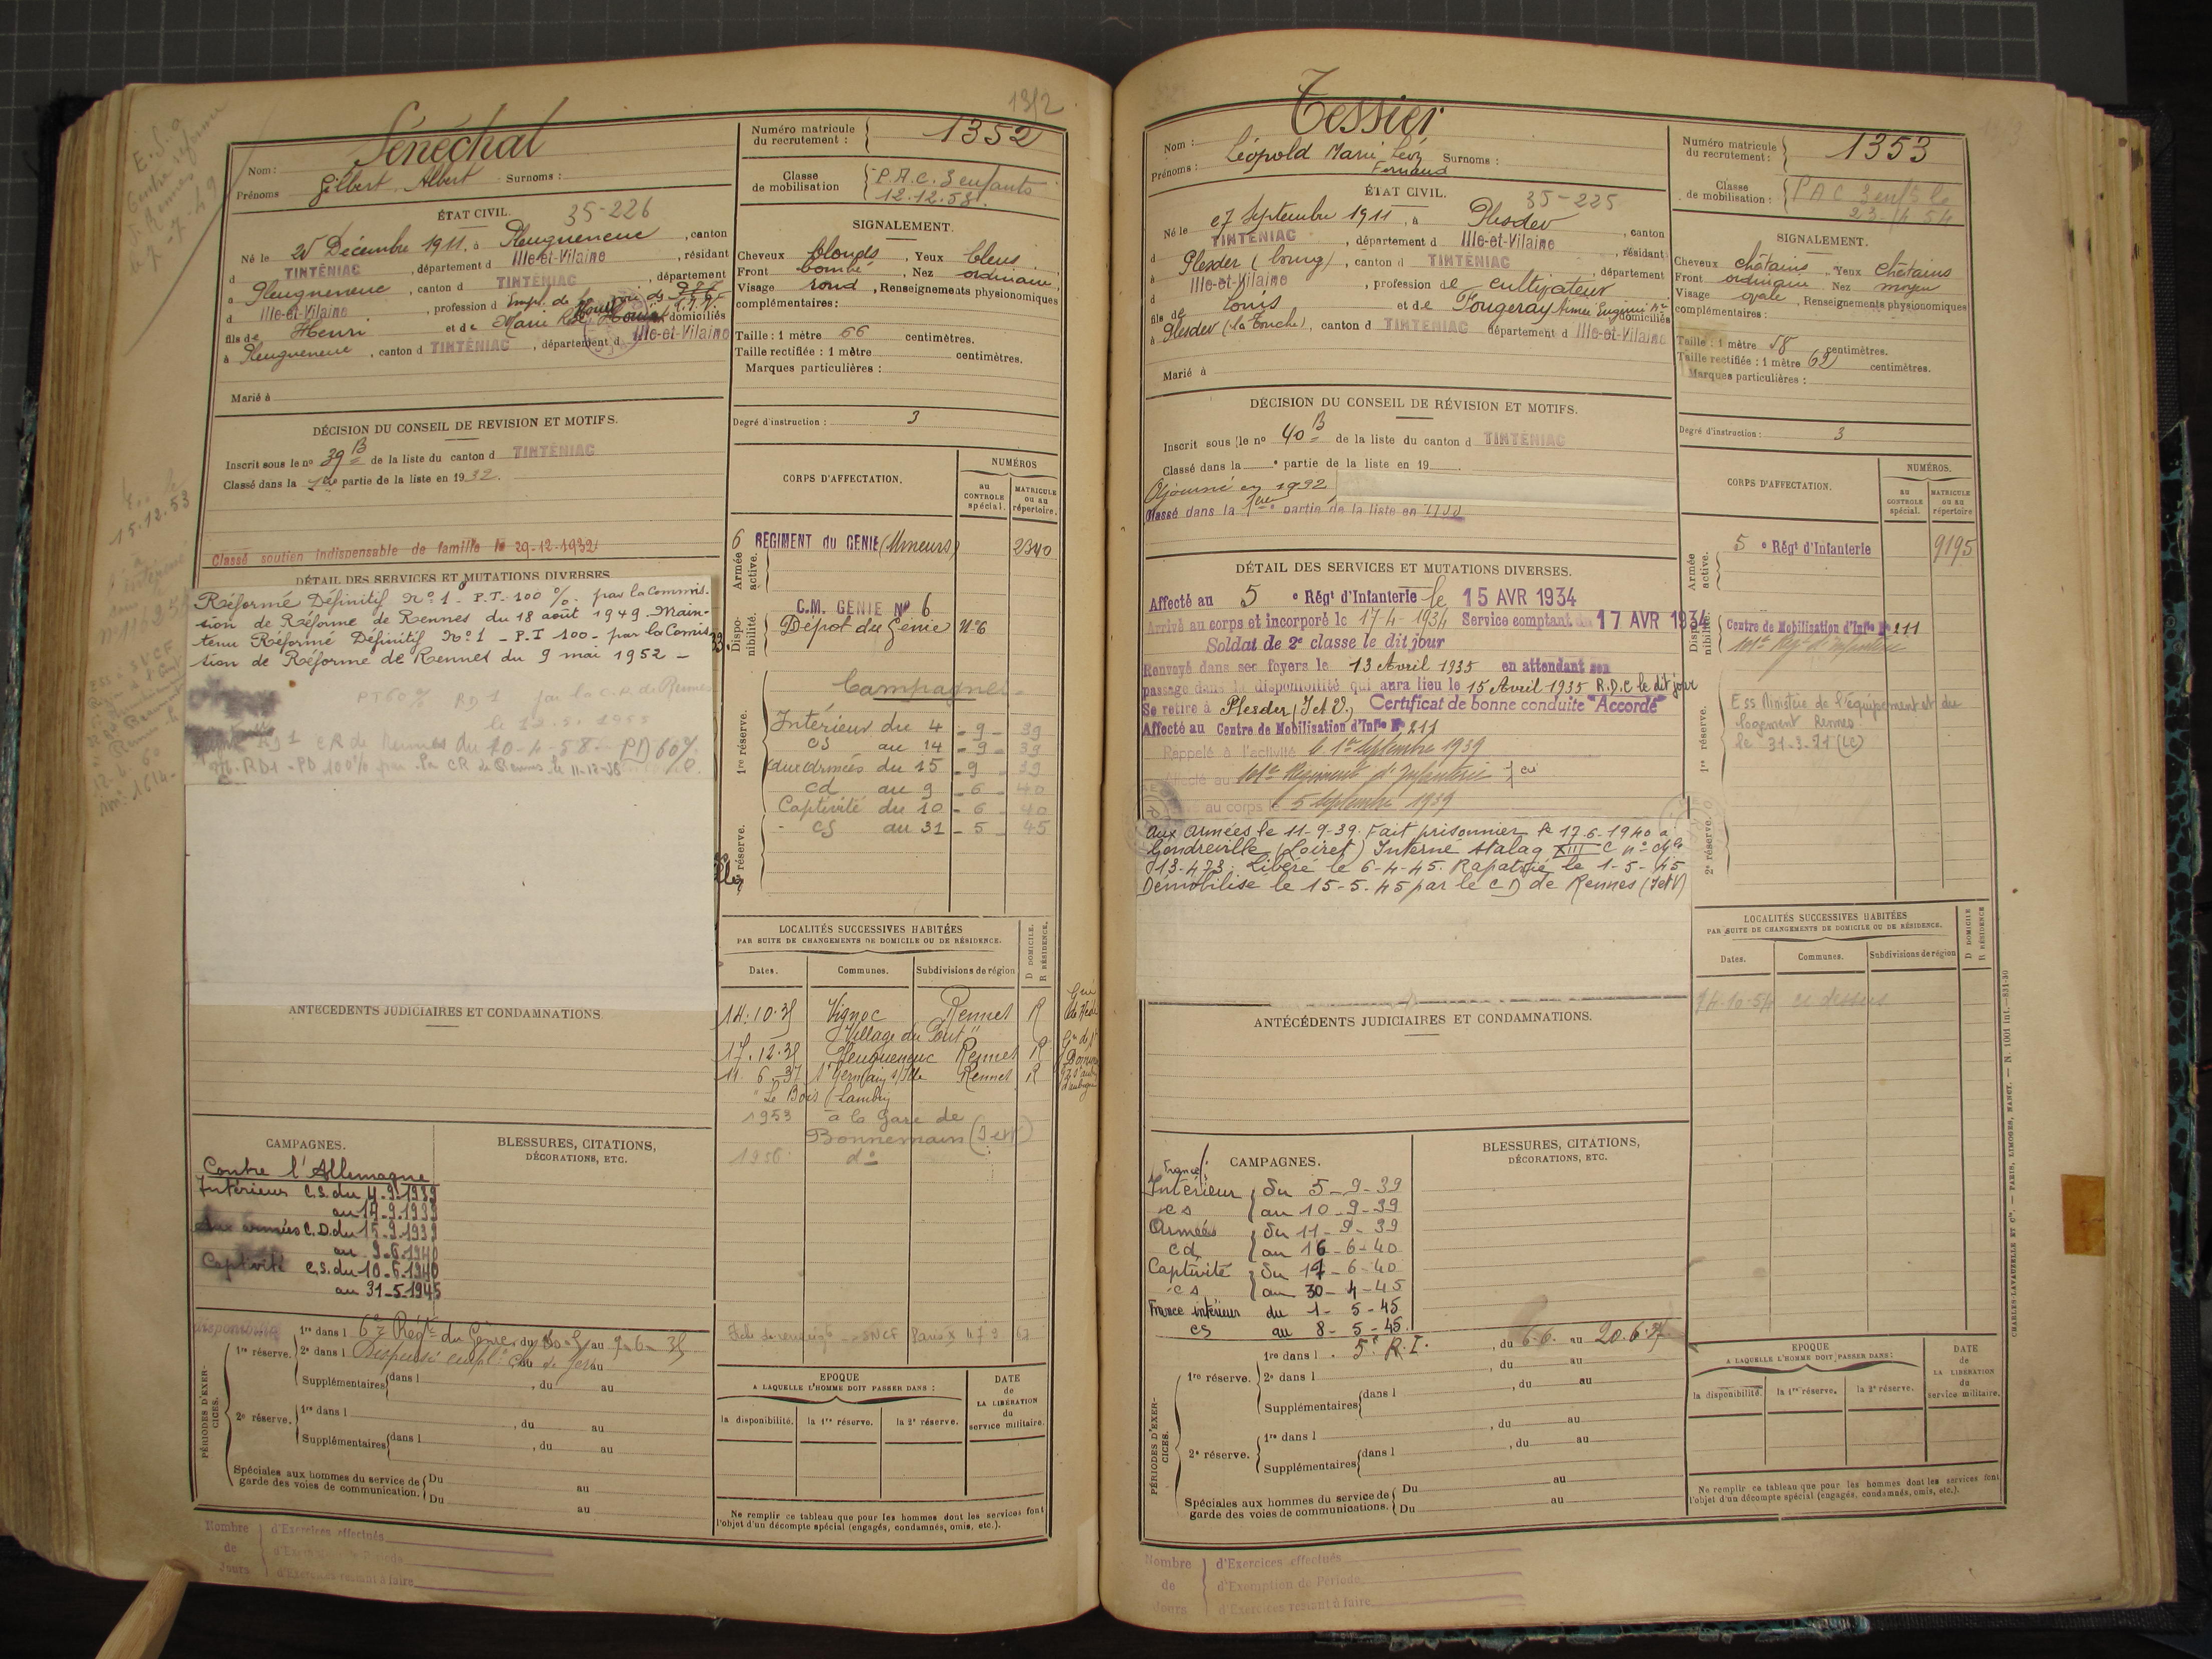 1352
Sénéchal
Nom :
Prénoms Gilbert Albert Surnoms :
Numéro matricule du recrutement : 1352
Classe de mobilisation P.A.C. 3 enfants
12.12.58.
ÉTAT CIVIL. 35-226
Né le 25 Décembre 1911, à Pleugueneuc, canton
d TINTÉNIAC, département d Ille-et-Vilaine, résidant
à Pleugueneuc, canton d TINTÉNIAC, département
d Ille-et-Vilaine, profession d Empl. de
fils de Henri et de Marie domiciliés
à Pleugueneuc, canton d TINTÉNIAC, département d Ille-et-Vilaine
Marié à
SIGNALEMENT.
Cheveux blonds, Yeux bleus
Front bombé, Nez ordinaire,
Visage rond, Renseignements physionomiques
complémentaires :
Taille : 1 mètre 66 centimètres.
Taille rectifiée : 1 mètre centimètres.
Marques particulières :
Degré d'instruction : 3
DÉCISION DU CONSEIL DE REVISION ET MOTIFS.
Inscrit sous le no 39 B de la liste du canton d TINTÉNIAC
Classé dans la 1re partie de la liste en 1932.
Classé soutien indispensable de famille le 29-12-1932
DÉTAIL DES SERVICES ET MUTATIONS DIVERSES
Réformé Définitif No 1 - P.T. 100 %. par la Commis-
sion de Réforme de Rennes du 18 août 1949. Main-
tenu Réformé Définitif No 1 - P.I 100 - par la Comis
sion de Réforme de Rennes du 9 mai 1952 -
PT 60 % RD 1 par la C.R de Rennes
RD 1 CR de Rennes du 10-4-58 - PD 60 %
RD1 - PD 100% par la CR de Rennes le 11-12-58
CORPS D'AFFECTATION.
NUMÉROS
au CONTROLE spécial.
MATRICULE ou au répertoire.
Armée active.
6 RÉGIMENT du GÉNIE (Mineurs) 2340
Disponibilité.
C.M. GÉNIE No 6
Dépôt du Génie No 6
1re réserve.
Campagnes
Intérieur du 4 - 9 - 39
CS au 14 - 9 - 39
aux armées du 15 - 9 - 39
Cd au 9 - 6 - 40
Captivité du 10 - 6 - 40
CS au 31 - 5 - 45
2e réserve.
LOCALITÉS SUCCESSIVES HABITÉES
PAR SUITE DE CHANGEMENTS DE DOMICILE OU DE RÉSIDENCE.
D DOMICILE.
R RÉSIDENCE.
Dates. Communes. Subdivisions de région
14.10.35 Vignoc Rennes R
"Village du Pont"
17.12.35 Pleugueneuc Rennes R
11.6.37 St Germain s/Ille Rennes R
"Le Bois Lambin
1953 à la Gare de
Bonnemain (I et V)
1956 do
ANTÉCÉDENTS JUDICIAIRES ET CONDAMNATIONS
CAMPAGNES.
Contre l'Allemagne
Intérieur C.S. du 4-9-1939
au 14-9-1939
Aux armées C.D. du 15-9-1939
au 9-6-1940
Captivité C.S. du 10-6-1940
au 31-5-1945
BLESSURES, CITATIONS,
DÉCORATIONS, ETC.
PÉRIODES D'EXERCICES.
disponibilité
1re réserve.
1re dans l 6e Régt du Génie, du au 9-6-35
2e dans l Dispensé empl. ch. de fer au
Supplémentaires dans l , du au
2e réserve.
1re dans l , du au
Supplémentaires dans l , du au
Spéciales aux hommes du service de garde des voies de communication. Du au
Du au
EPOQUE
A LAQUELLE L'HOMME DOIT PASSER DANS :
la disponibilité. la 1re réserve. la 2e réserve.
DATE de LA LIBÉRATION du service militaire.
Ne remplir ce tableau que pour les hommes dont les services font
l'objet d'un décompte spécial (engagés, condamnés, omis, etc.).
Nombre de Jours
d'Exercices effectués
d'Exemption de Période
d'Exercices restant à faire
Tessier
Nom :
Prénoms : Léopold Marie Léon Surnoms :
Fernand
Numéro matricule du recrutement : 1353
Classe de mobilisation : PAC 3 enfts le
23-4 54
ÉTAT CIVIL. 35-225
Né le 27 Septembre 1911, à Plesder, canton
d TINTÉNIAC, département d Ille-et-Vilaine, résidant
à Plesder (bourg), canton d TINTÉNIAC, département
d Ille-et-Vilaine, profession de cultivateur
fils de Louis et de Fougeray Aimée Eugénie Mie domiciliés
à Plesder (La Touche), canton d TINTÉNIAC département d Ille-et-Vilaine
Marié à
SIGNALEMENT.
Cheveux châtains, Yeux châtains
Front ordinaire, Nez moyen
Visage ovale, Renseignements physionomiques
complémentaires :
Taille : 1 mètre 58 centimètres.
Taille rectifiée : 1 mètre 62 centimètres.
Marques particulières :
Degré d'instruction : 3
DÉCISION DU CONSEIL DE RÉVISION ET MOTIFS.
Inscrit sous le no 40 B de la liste du canton d TINTÉNIAC
Classé dans la e partie de la liste en 19
Ajourné en 1932
Classé dans la 1ère partie de la liste en
DÉTAIL DES SERVICES ET MUTATIONS DIVERSES.
Affecté au 5 e Régt d'Infanterie le 15 AVR 1934
Arrivé au corps et incorporé le 17-4-1934 Service comptant du 17 AVR 1934
Soldat de 2e classe le dit jour
Renvoyé dans ses foyers le 13 Avril 1935 en attendant son
passage dans la disponibilité qui aura lieu le 15 Avril 1935 R.D.C le dit jour
Se retire à Plesder (I et V.) Certificat de bonne conduite "Accordé"
Affecté au Centre de Mobilisation d'Infie No 211
Rappelé à l'activité le 1er Septembre 1939
Affecté au Régiment d'Infanterie
au corps le 5 Septembre 1939
Aux Armées le 11-9-39. Fait prisonnier le 17.6.1940 à
Gondreville (Loiret) Interné stalag XIII C no
13.473. Libéré le 6-4-45. Rapatrié le 1-5-45
Démobilisé le 15-5-45 par le C D de Rennes (I et V)
CORPS D'AFFECTATION.
NUMÉROS.
au CONTROLE spécial.
MATRICULE ou au répertoire
Armée active.
5 e Régt d'Infanterie 9195
Disponibilité.
Centre de Mobilisation d'Infie No 211
1re réserve.
Ess Ministère de l'équipement et du
logement Rennes
le 31-3-71 (LC)
2e réserve.
LOCALITÉS SUCCESSIVES HABITÉES
PAR SUITE DE CHANGEMENTS DE DOMICILE OU DE RÉSIDENCE.
D DOMICILE
R RÉSIDENCE
Dates. Communes. Subdivisions de région
14.10.54 ci dessus
ANTÉCÉDENTS JUDICIAIRES ET CONDAMNATIONS.
CAMPAGNES.
France
Intérieur du 5-9-39
cs au 10-9-39
Armées du 11-9-39
cd au 16-6-40
Captivité du 17-6-40
cs au 30-4-45
France intérieur du 1-5-45
cs au 8-5-45.
BLESSURES, CITATIONS,
DÉCORATIONS, ETC.
PÉRIODES D'EXERCICES.
1re réserve.
1re dans l 5e R.I. , du 6.6. au 20.6.37
2e dans l , du au
Supplémentaires dans l , du au
2e réserve.
1re dans l , du au
Supplémentaires dans l , du au
Spéciales aux hommes du service de garde des voies de communications. Du au
Du au
EPOQUE
A LAQUELLE L'HOMME DOIT PASSER DANS :
la disponibilité. la 1re réserve. la 2e réserve.
DATE de LA LIBÉRATION du service militaire.
Ne remplir ce tableau que pour les hommes dont les services font
l'objet d'un décompte spécial (engagés, condamnés, omis, etc.).
CHARLES-LAVAUZELLE ET Cie. — PARIS, LIMOGES, NANCY. — N. 1001 int.—831-30
Nombre de Jours
d'Exercices effectués
d'Exemption de Période
d'Exercices restant à faire